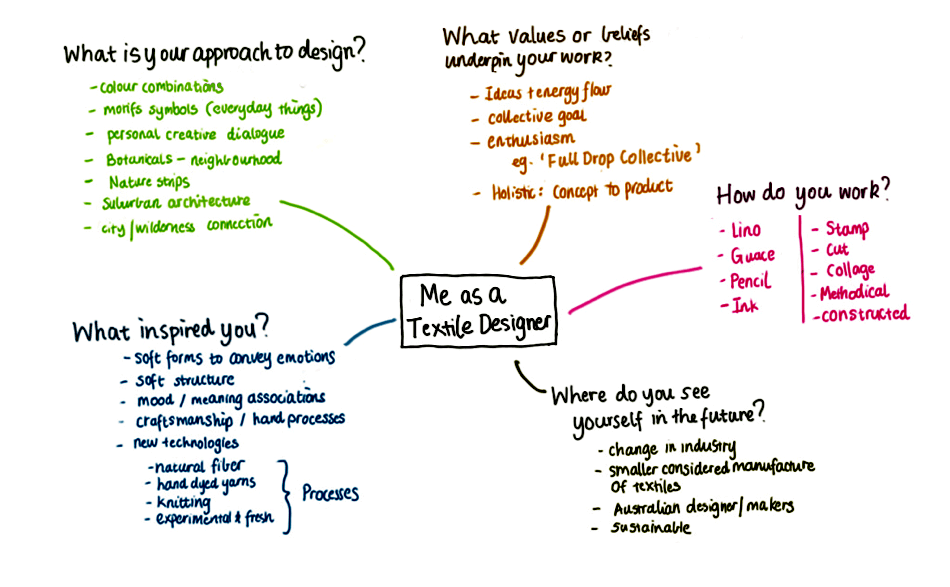 What is your approach to design?
- colour combinations
- motifs symbols (everyday things)
- personal creative dialogue
- Botanicals - neighbourhood
- Nature strips
- Suburban architecture
- city/wilderness connection
What values or beliefs
underpin your work?
- Ideas + energy flow
- collective goal
- enthusiasm
eg. 'Full Drop Collective'
- Holistic: Concept to product
How do you work?
- Lino
- Guace
- Pencil
- Ink
- Stamp
- Cut
- Collage
- Methodical
- constructed
Me as a
Textile Designer
What inspired you?
- soft forms to convey emotions
- soft structure
- mood / meaning associations
- craftsmanship / hand processes
- new technologies
- natural fiber
- hand dyed yarns
- knitting
- experimental & fresh
Processes
Where do you see
yourself in the future?
- change in industry
- smaller considered manufacture
of textiles
- Australian designer/makers
- sustainable